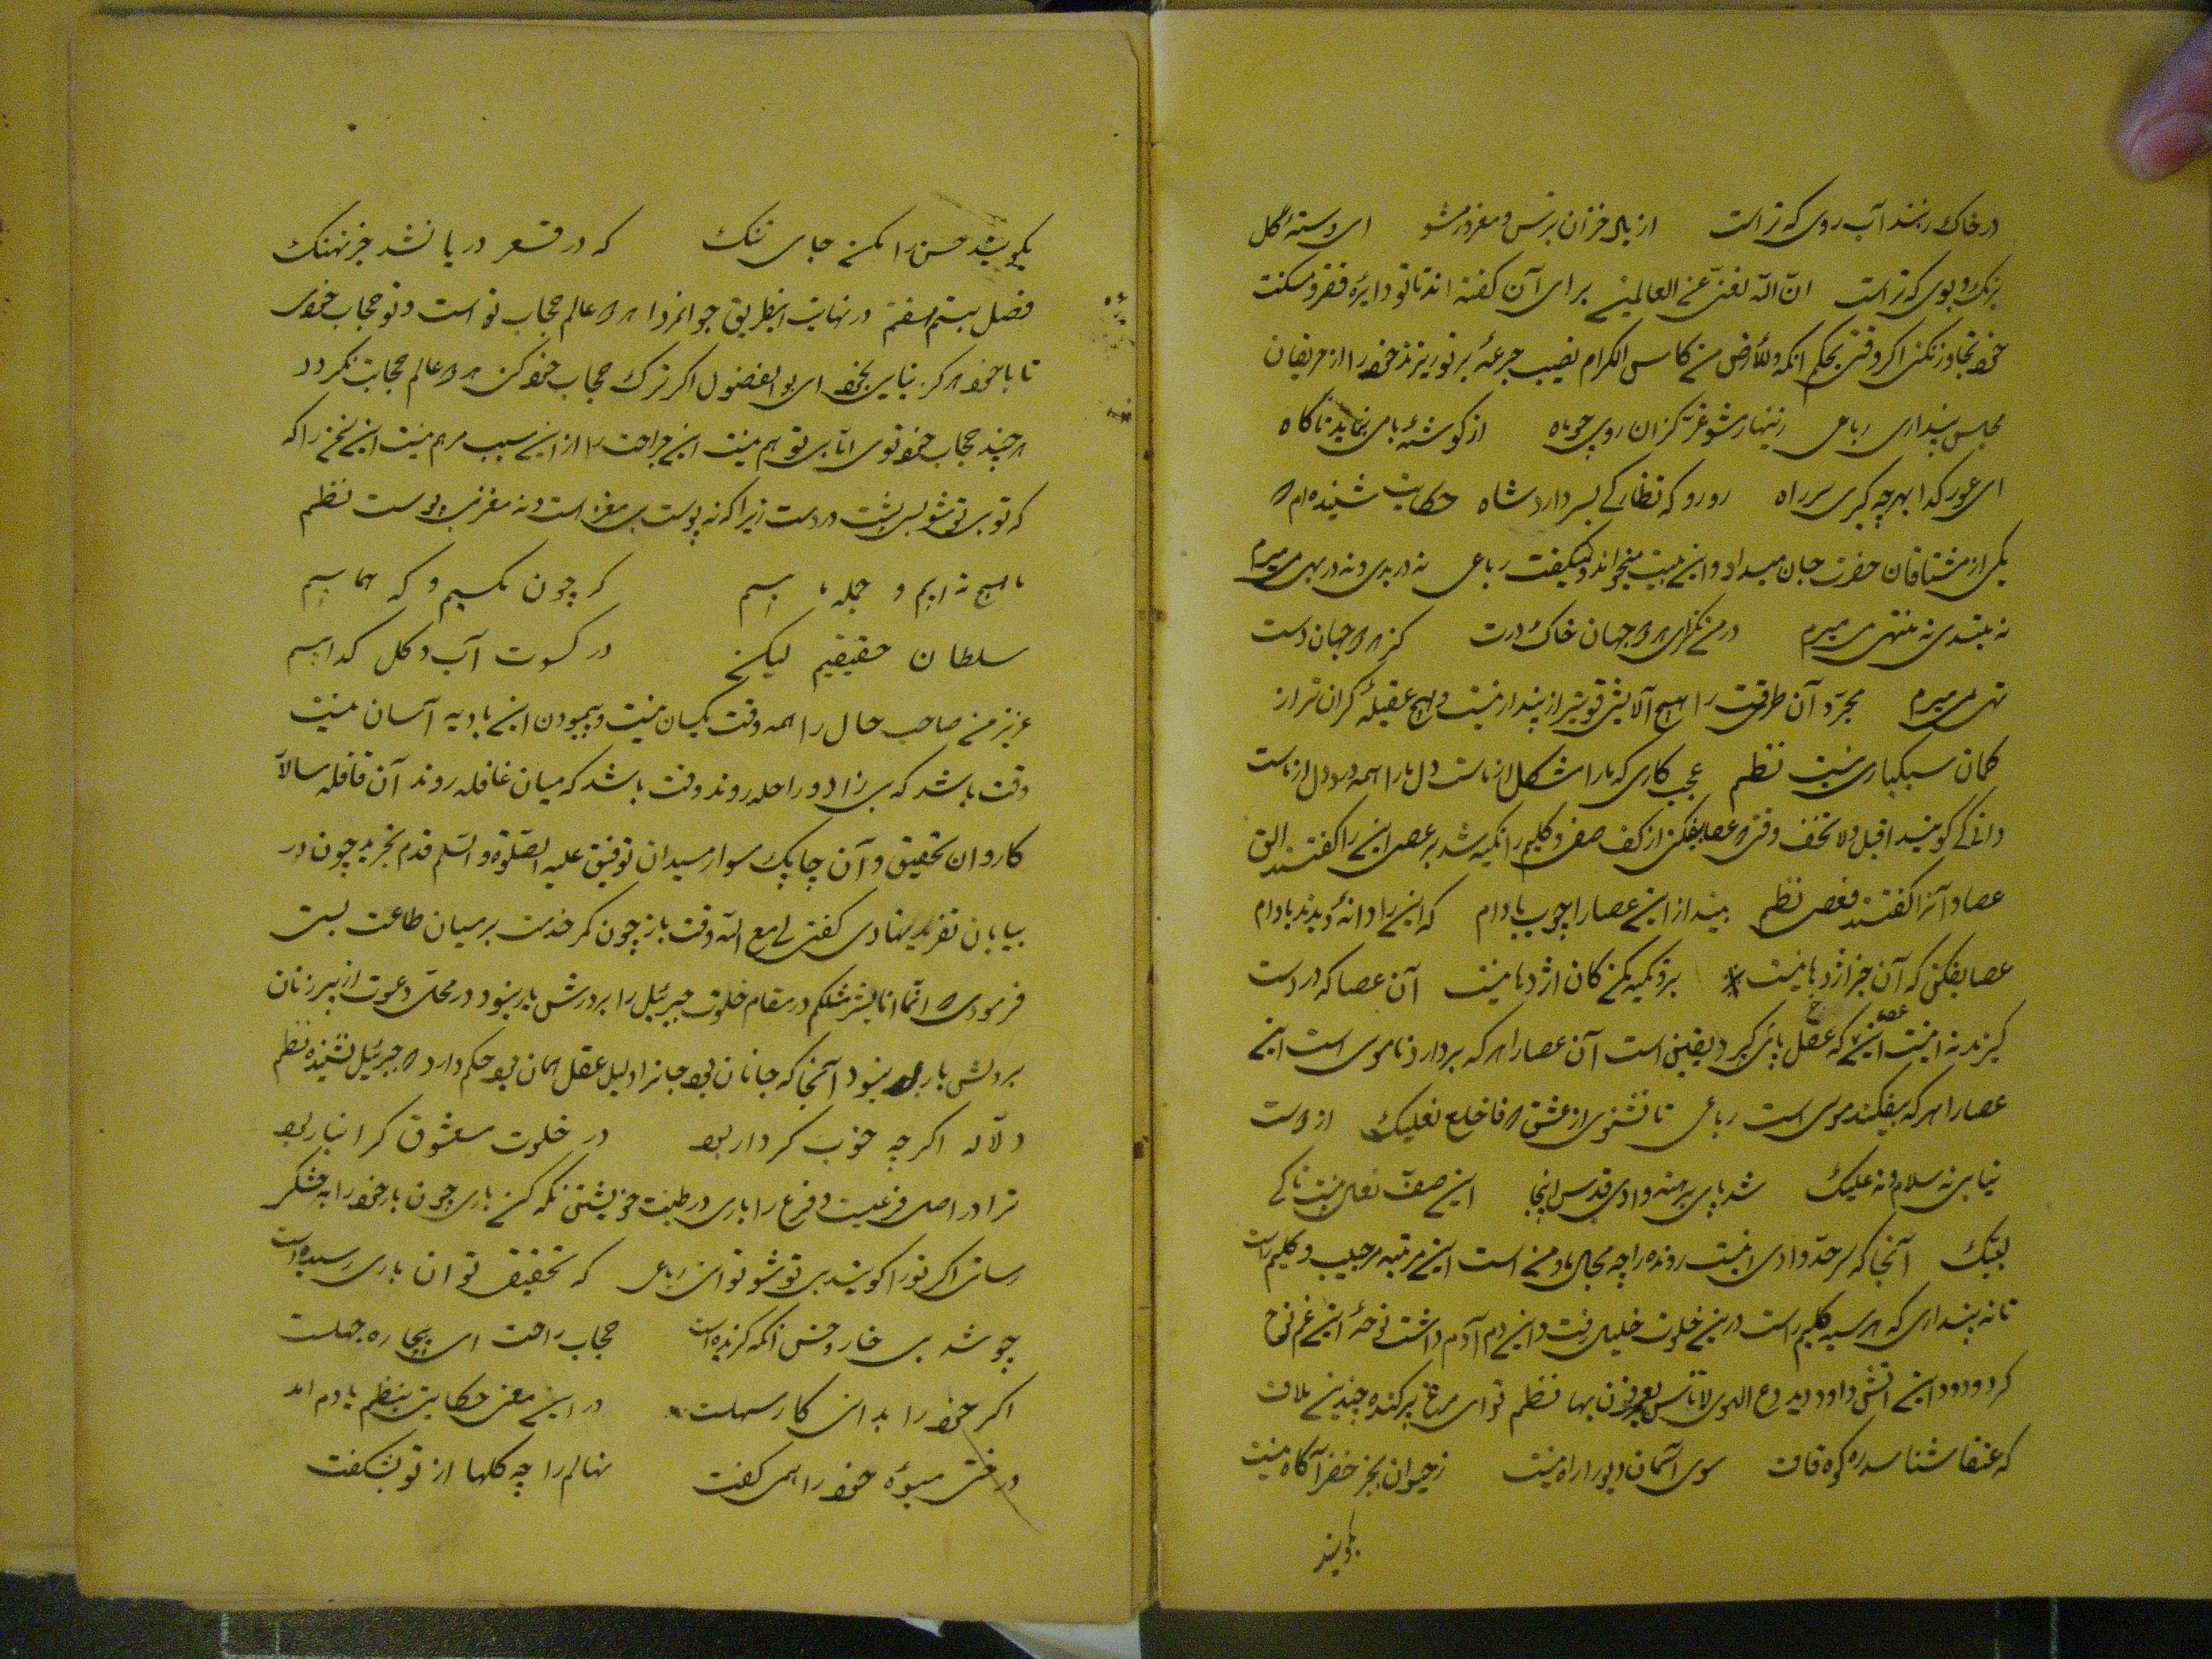 در خاک ریزند آب روی که تراست از باد خزان بترس و مغرور مشو ای دسته گل
برنک و بوی که تراست ان الله لغنی عن العالمین برای آن کفته اند تا تو دایره فقر و مسکنت
خود تجاوز نکنی اکر وقتی بحکم انکه وللأرض من کاس الکرام نصیب جرعهٔ بر تو ریزند خود را از حریفان
مجلس پنداری رباعی زینهار مشو غره کزان روی چو ماه از کوشهٔ بامی بنماید ناکاه
ای عور کدا بهر چه کیری سر راه رو رو که نظارکی بسی دارد شاه حکایت شنیده ام که
یکی از مشتاقان حضرت جان میداد و این بیت میخواند و میکفت رباعی نه در بدی و نه در بهی میمیرم
نه مبتدی نه منتهی می میرم در من نکر ای دو جهان خاک درت کز هر دو جهان دست
تهی می میرم مجرد آن طریقت را هیچ آلایشی قویتر از پندار نیست و هیچ عقیلهٔ کران تر از
کمان سبکباری نیست نظم عجب کاری که ما را مشکل از ماست دل ما را همه درد دل از ماست
دانی که کویند اقبل ولا تخف وقتی که عصا بیفکنی از کف صفی و کلیم را تکیه شد بر عصی این را کفتند الق
عصا و آنرا کفتند فعصی نظم بینداز این عصا را چوب بادام که این را دانهٔ دیدند با دام
عصا بفکن که آن جز اژدها نیست برو تکیه مکن کان اژدها نیست آن عصا که در دست
کیرند نه اینست این عصای که عقل پای کیر و یقین است آن عصا را هر که بردارد ناموسی است این
عصا را هر که بیفکند موسی است رباعی تا نشنوی از عشق که فاخلع نعلیک از دوست
نیابی نه سلام و نه علیک شد پای برهنه وادی قدس اینجا این صف نعال نیست تا کی
لبیک آنجا که سرحد وادی اینست رونده را چه مجال ما و من است این مرتبه مر حبیب و کلیم راست
تا نه پنداری که هر سیه کلیم راست درین خلوت خلیل رفت و این دم آدم داشت نوحهٔ این غم نوح
کرد و درود این آتش داود دید ودع الهوی نظم تو ای مرغ پر کنده چندین ملاف
که عنقا شناسد ره کوه قاف سوی آسمان دیو را راه نیست ز حیوان بجز خضر آکاه نیست
بکوشید
بکوشید حسن را مکن جای تنک که در قعر دریا نشد جز نهنک
فصل بیستم هفتم در نهایت اینطریق جوانمردا هر دو عالم حجاب تو است و تو حجاب خودی
تا با خود هرکز نیایی بخود ای بو الفضول اکر ترک حجاب خود کنی هر دو عالم حجابت نکردد
هر چند حجاب خود توی اما بی تو هم نیست این جراحت را از این سبب مرهم نیست این سخن را که
که تو بی تو شو بس پشت در دست زیرا که نه پوست بی مغز است و نه مغز بی پوست نظم
ما هیچ نه ایم و جمله ماییم کر چون مکسیم و کر هماییم
سلطان حقیقیم لیکن در کسوت آب و کل کداییم
عزیز من صاحب حال را همه وقت یکسان نیست و پیمودن این بادیه آسان نیست
وقت باشد که بی زاد و راحله روند وقت باشد که میان غافله روند آن قافله سالار
کاروان تحقیق و آن چابک سوار میدان توفیق علیه الصلوة والسلم قدم تجرید چون در
بیابان تفرید نهادی کفتی لی مع الله وقت باز چون کمر خدمت بر میان طاعت بست
فرمودی که انما انا بشر مثلکم در مقام خلوت جبرئیل را بر درش بار نبود در محل دعوت از پیر زنان
بر دلش بار نبود آنجا که جانان بود جانرا دلیل عقل همان بود حکم دارد که جبرئیل شنیده نظم
دلاله اکر چه خوب کردار بود در خلوت معشوق کرانبار بود
ترا در اصل فرعیت و فرع را باری در طبیعت خویشتن نکه کن باری چون بار خود را به خشکی
رسانی اکر تو را کویند بی تو شو توانی رباعی که تحقیق توان باری رسیده است
چو شد بی خار و خس زانکه کزیده است حجاب راحت ای بیچاره جهلست
اکر خود را بدانی کار سهلست در این معنی حکایت بنظم یادم آمد
درختی میوهٔ خود را همی کفت نهالم را چه کلها از تو بشکفت